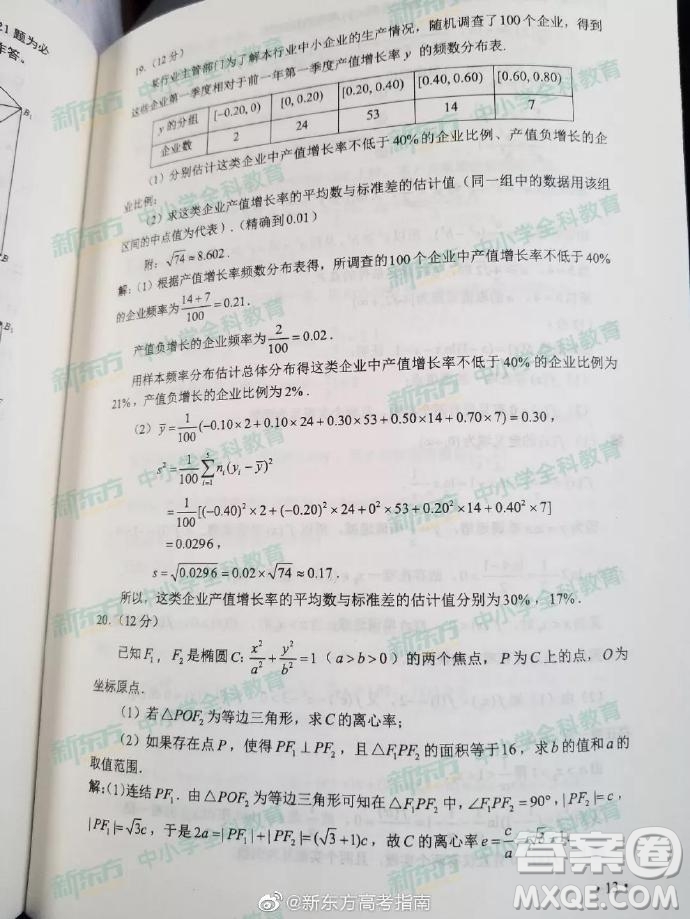 21 题为必
作答。
B₁
B
B₁
19.（12 分）
某行业主管部门为了解本行业中小企业的生产情况，随机调查了100个企业，得到
这些企业第一季度相对于前一年第一季度产值增长率 y 的频数分布表.
y 的分组 [−0.20, 0) [0, 0.20) [0.20, 0.40) [0.40, 0.60) [0.60, 0.80)
企业数 2 24 53 14 7
（1）分别估计这类企业中产值增长率不低于 40%的企业比例、产值负增长的企
业比例；
（2）求这类企业产值增长率的平均数与标准差的估计值（同一组中的数据用该组
区间的中点值为代表）.（精确到0.01）
附：√74 ≈ 8.602 .
解:（1）根据产值增长率频数分布表得，所调查的100个企业中产值增长率不低于 40%
的企业频率为 (14+7)/100 = 0.21.
产值负增长的企业频率为 2/100 = 0.02 .
用样本频率分布估计总体分布得这类企业中产值增长率不低于 40%的企业比例为
21%，产值负增长的企业比例为2% .
（2）ȳ = 1/100 (−0.10×2+0.10×24+0.30×53+0.50×14+0.70×7) = 0.30，
s² = 1/100 ∑ᵢ₌₁⁵ nᵢ(yᵢ−ȳ)²
= 1/100 [(−0.40)²×2+(−0.20)²×24+0²×53+0.20²×14+0.40²×7]
= 0.0296，
s = √0.0296 = 0.02×√74 ≈ 0.17 .
所以，这类企业产值增长率的平均数与标准差的估计值分别为30%，17% .
20.（12 分）
已知 F₁，F₂ 是椭圆 C: x²/a² + y²/b² = 1（a>b>0）的两个焦点，P 为 C 上的点，O 为
坐标原点.
（1）若△POF₂ 为等边三角形，求 C 的离心率；
（2）如果存在点 P，使得 PF₁ ⊥ PF₂，且△F₁PF₂ 的面积等于16，求 b 的值和 a 的
取值范围.
解:（1）连结 PF₁ . 由△POF₂ 为等边三角形可知在△F₁PF₂ 中，∠F₁PF₂ = 90°，|PF₂| = c，
|PF₁| = √3c，于是 2a = |PF₁| + |PF₂| = (√3+1)c，故 C 的离心率 e = c/a = √3−1 .
· 13 ·
新东方 中小学全科教育
答案圈
@新东方高考指南